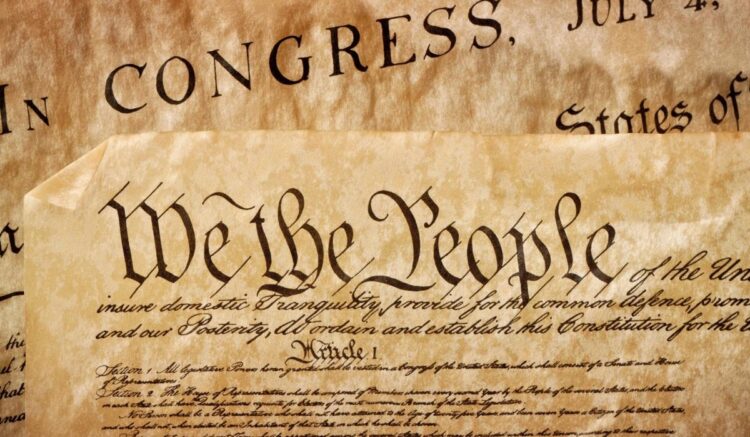 In CONGRESS, JULY 4,
States of
We the People of the Un
insure domestic Tranquility, provide for the common defence, prom
and our Posterity, do ordain and establish this Constitution for the
Article I
Section 1 All legislative Powers herein granted shall be vested in a Congress of the United States, which shall consist of a Senate and House
of Representatives.
Section 2 The House of Representatives shall be composed of Members chosen every second Year by the People of the several States, and the
in each State shall have Qualifications requisite for Electors of the most numerous Branch of the State Legislature.
No Person shall be a Representative who shall not have attained to the Age of twenty five Years, and been seven Years a Citizen of the United States,
and who shall not, when elected, be an Inhabitant of that State in which he shall be chosen.